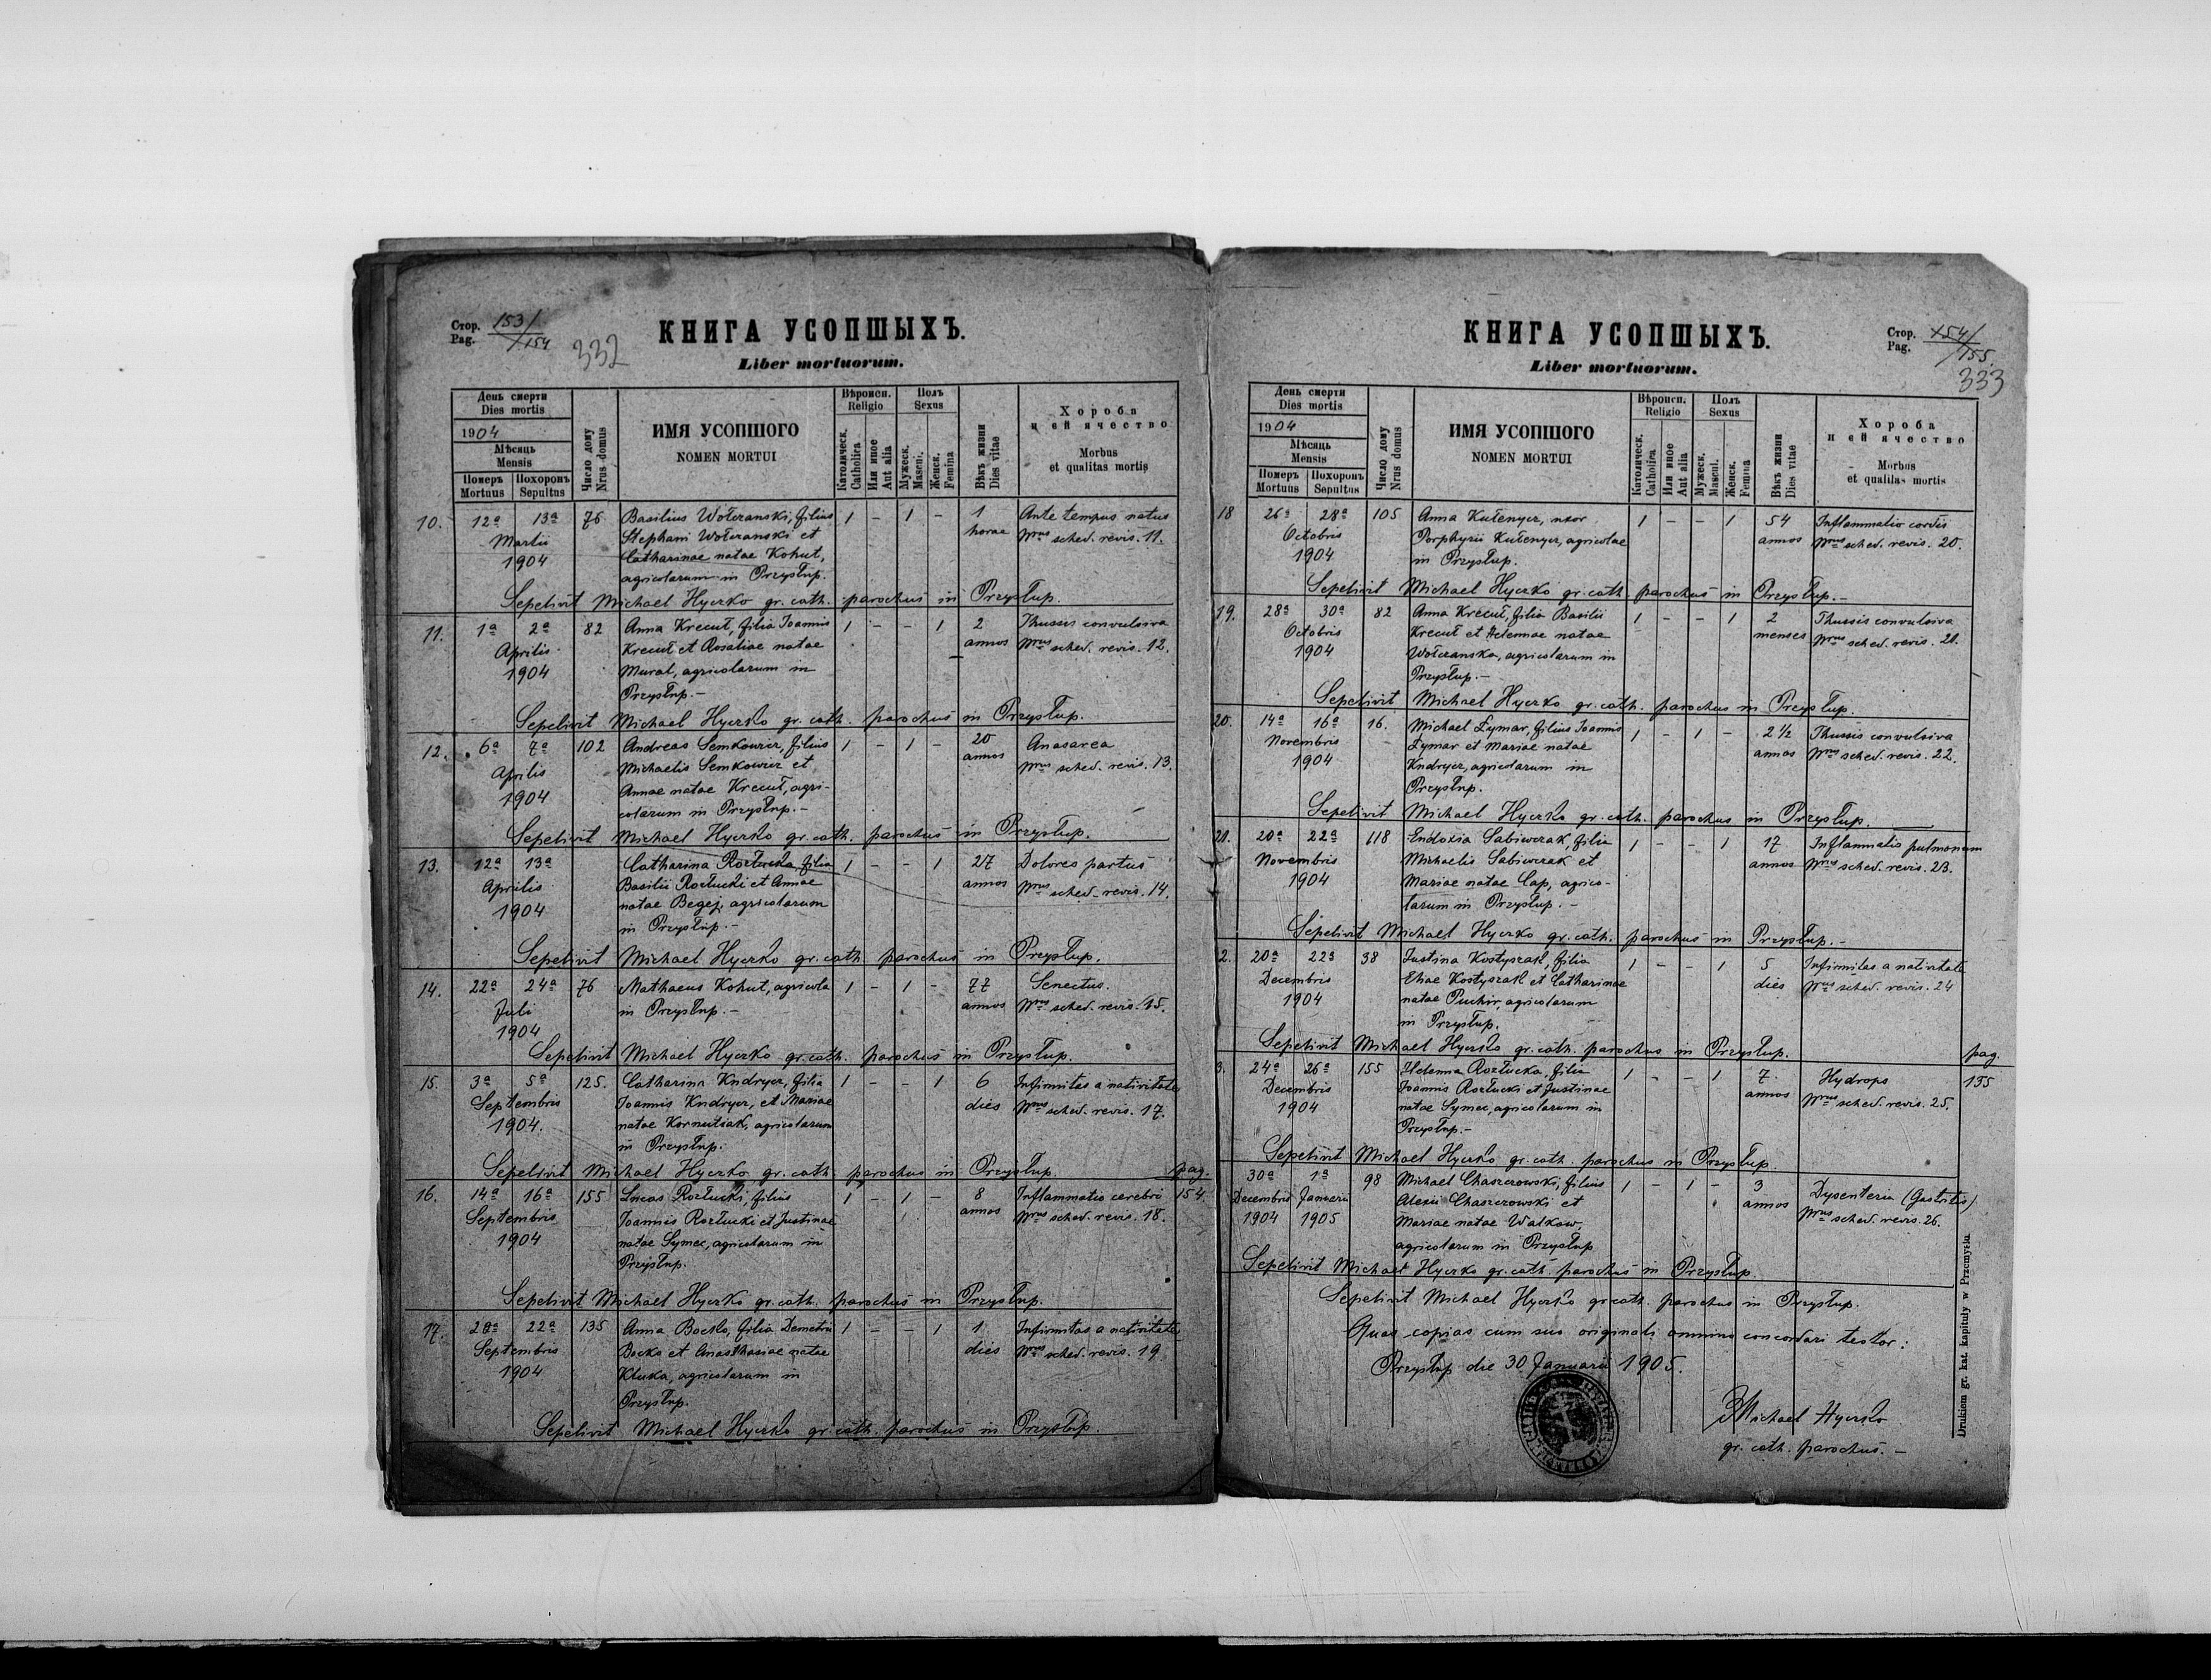 Стор. Pag. 153/154
332
КНИГА УСОПШЫХЪ.
Liber mortuorum.
День смерти Dies mortis
1904
Мѣсяць Mensis
Померъ Mortuus
Похоронъ Sepultus
Число дому Nrus domus
ИМЯ УСОПШОГО
NOMEN MORTUI
Вѣроисп. Religio
Католическ. Catholica
Или иное Aut alia
Полъ Sexus
Мужеск. Mascul.
Женск. Femina
Вѣкъ жизни Dies vitae
Хороба и ей ячество
Morbus et qualitas mortis
10. 12a 13a 76 Basilius Wołczanski, filius 1 - 1 - 1 Ante tempus natus
Martii Stephani Wołczanski et horae Nrus sched. revis. 11.
1904 Catharinae natae Kohut,
agricolarum in Przysłup.
Sepelivit Michael Hyczko gr. cath. parochus in Przysłup.
11. 1a 2a 82 Anna Krecuł, filia Joannis 1 - - 1 2 Thussis convulsiva
Aprilis Krecuł et Rosaliae natae annos Nrus sched. revis. 12.
1904 Mural, agricolarum in
Przysłup.-
Sepelivit Michael Hyczko gr. cath. parochus in Przysłup.
12. 6a 7a 102 Andreas Semkowicz, filius 1 - 1 - 20 Anasarca
Aprilis Michaelis Semkowicz et annos Nrus sched. revis. 13.
1904 Annae natae Krecuł, agri-
colarum in Przysłup.-
Sepelivit Michael Hyczko gr. cath. parochus in Przysłup.
13. 12a 13a Catharina Rozłucka, filia 1 - - 1 27 Dolores partus
Aprilis Basilii Rozłucki et Annae annos Nrus sched. revis. 14.
1904 natae Begej, agricolarum
in Przysłup.-
Sepelivit Michael Hyczko gr. cath. parochus in Przysłup.
14. 22a 24a 76 Mathaeus Kohut, agricola 1 - 1 - 77 Senectus.
Juli in Przysłup.- annos Nrus sched. revis. 15.
1904
Sepelivit Michael Hyczko gr. cath. parochus in Przysłup.
15. 3a 5a 125. Catharina Kndrycz, filia 1 - - 1 6 Infirmitas a nativitate
Septembris Joannis Kndrycz, et Mariae dies Nrus sched. revis. 17.
1904. natae Kornutiak, agricolarum
in Przysłup.
Sepelivit Michael Hyczko gr. cath. parochus in Przysłup. pag.
16. 14a 16a 155 Lucas Rozłucki, filius 1 - 1 - 8 Inflammatio cerebri 154
Septembris Joannis Rozłucki et Justinae annos Nrus sched. revis. 18.
1904 natae Symec, agricolarum in
Przysłup.
Sepelivit Michael Hyczko gr. cath. parochus in Przysłup.
17. 20a 22a 135 Anna Bocko, filia Demetrii 1 - - 1 1 Infirmitas a nativitate
Septembris Bocko et Anasthasiae natae dies Nrus sched. revis. 19
1904 Kluka, agricolarum in
Przysłup.
Sepelivit Michael Hyczko gr. cath. parochus in Przysłup.
КНИГА УСОПШЫХЪ.
Liber mortuorum.
Стор. Pag. 154/155.
333
День смерти Dies mortis
1904
Мѣсяць Mensis
Померъ Mortuus
Похоронъ Sepultus
Число дому Nrus domus
ИМЯ УСОПШОГО
NOMEN MORTUI
Вѣроисп. Religio
Католическ. Catholica
Или иное Aut alia
Полъ Sexus
Мужеск. Mascul.
Женск. Femina
Вѣкъ жизни Dies vitae
Хороба и ей ячество
Morbus et qualitas mortis
18 26a 28a 105 Anna Kułenycz, uxor 1 - - 1 54 Inflammatio cordis
Octobris Porphyrii Kułenycz, agricolae annos Nrus sched. revis. 20.
1904 in Przysłup.
Sepelivit Michael Hyczko gr. cath. parochus in Przysłup.-
19. 28a 30a 82 Anna Krecuł, filia Basilii 1 - - 1 2 Thussis convulsiva
Octobris Krecuł et Helennae natae menses Nrus sched. revis. 21.
1904 Wołczanska, agricolarum in
Przysłup.-
Sepelivit Michael Hyczko gr. cath. parochus in Przysłup.
20. 14a 16a 16. Michael Łymar, filius Joannis 1 - 1 - 2 1/2 Thussis convulsiva
Novembris Łymar et Mariae natae annos Nrus sched. revis. 22.
1904 Kndrycz, agricolarum in
Przysłup.
Sepelivit Michael Hyczko gr. cath. parochus in Przysłup.
21. 20a 22a 118 Eudoxia Sabiwczak, filia 1 - - 1 17 Inflammatio pulmonum
Novembris Michaelis Sabiwczak et annos Nrus sched. revis. 23.
1904 Mariae natae Cap, agrico-
larum in Przysłup.-
Sepelivit Michael Hyczko gr. cath. parochus in Przysłup.-
2. 20a 22a 38 Justina Kostyszak, filia 1 - - 1 5 Infirmitas a nativitate
Decembris Eliae Kostyszak et Catharinae dies Nrus sched. revis. 24
1904 natae Puchir, agricolarum
in Przysłup.
Sepelivit Michael Hyczko gr. cath. parochus in Przysłup. pag.
3. 24a 26a 155 Helenna Rozłucka, filia 1 - - 1 7. Hydrops 155
Decembris Joannis Rozłucki et Justinae annos Nrus sched. revis. 25.
1904 natae Symec, agricolarum in
Przysłup.-
Sepelivit Michael Hyczko gr. cath. parochus in Przysłup.
30a 1a 98 Michael Chaszczowski, filius 1 - 1 - 3 Dysenteria (Gastritis)
Decembris Januarii Alexii Chaszczowski et annos Nrus sched. revis. 26.
1904 1905 Mariae natae Watkow,
agricolarum in Przysłup
Sepelivit Michael Hyczko gr. cath. parochus in Przysłup.
Sepelivit Michael Hyczko gr. cath. parochus in Przysłup.
Quas copias cum suo originali omnino concordari testor:
Przysłup die 30 Januarii 1905.
Michael Hyczko
gr. cath. parochus.-
Drukiem gr. kat. kapituły w Przemyślu.